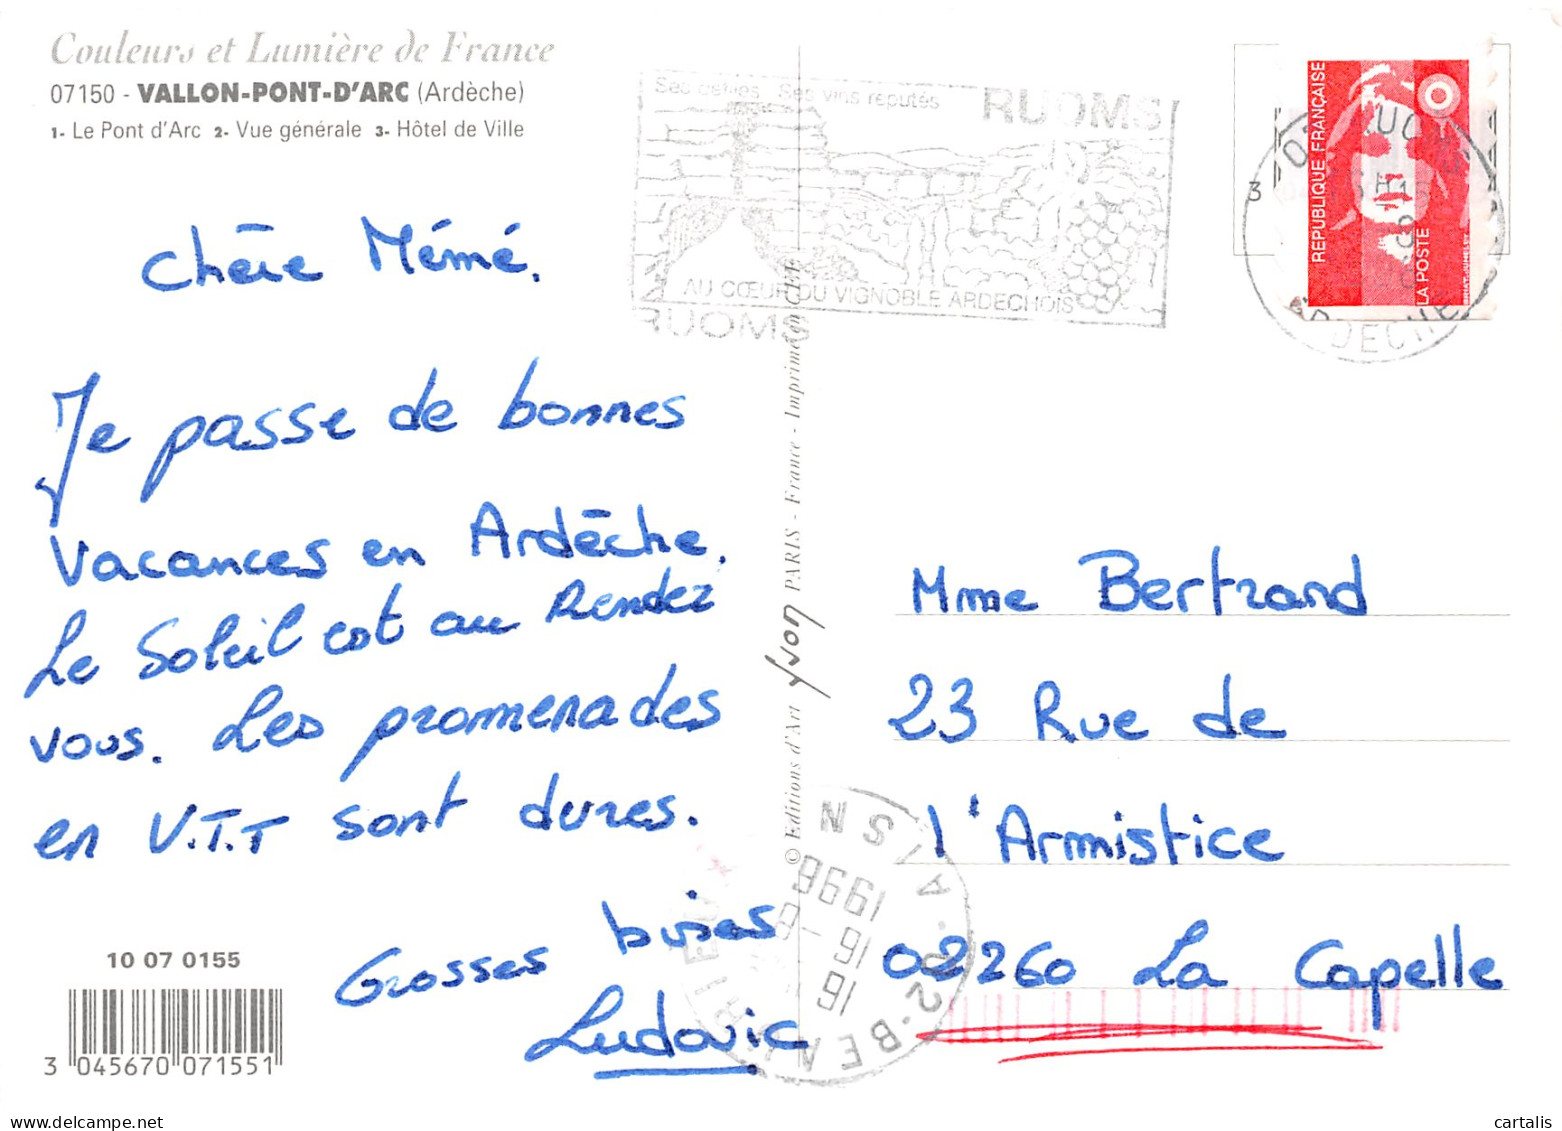 Couleurs et Lumière de France
07150 - VALLON-PONT-D'ARC (Ardèche)
1- Le Pont d'Arc 2- Vue générale 3- Hôtel de Ville
Chère Mémé.
Je passe de bonnes
vacances en Ardèche.
Le Soleil est au Rendez
vous. Les promenades
en V.T.T sont dures.
Grosses bises
Ludovic
10 07 0155
3 045670 071551
© Editions d'Art Yvon PARIS - France - Imprimé en CEE
Ses vins réputés
RUOMS
AU CŒUR DU VIGNOBLE ARDECHOIS
RUOMS
3
REPUBLIQUE FRANÇAISE
LA POSTE
ARDECHE
Mme Bertrand
23 Rue de
l'Armistice
02260 La Capelle
16
16 - 8
1996
cartalis